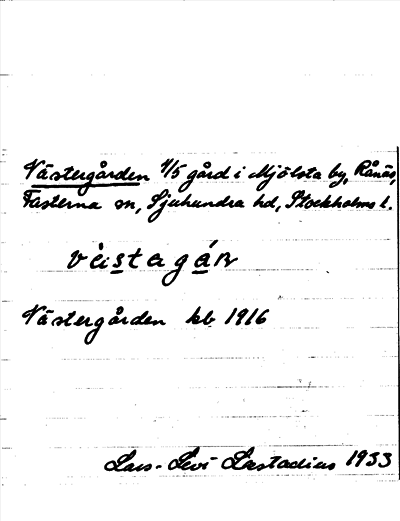 Västergården 4/5 gård i Mjölsta by, Rånäs,
Fasterna sn, Sjuhundra hd, Stockholms l.
Västergården kb 1916
Lars-Levi Læstadius 1933